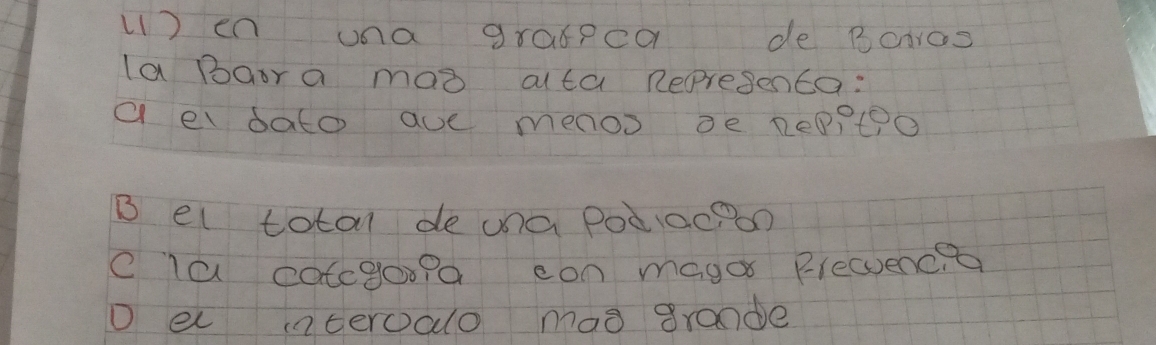 11) en una grafica de Barras
la Barra mas alta Representa:
a el dato que menos se Repitio
B el total de una Poblacion
C la categoria con mayor Frecuencia
D el intervalo mas grande